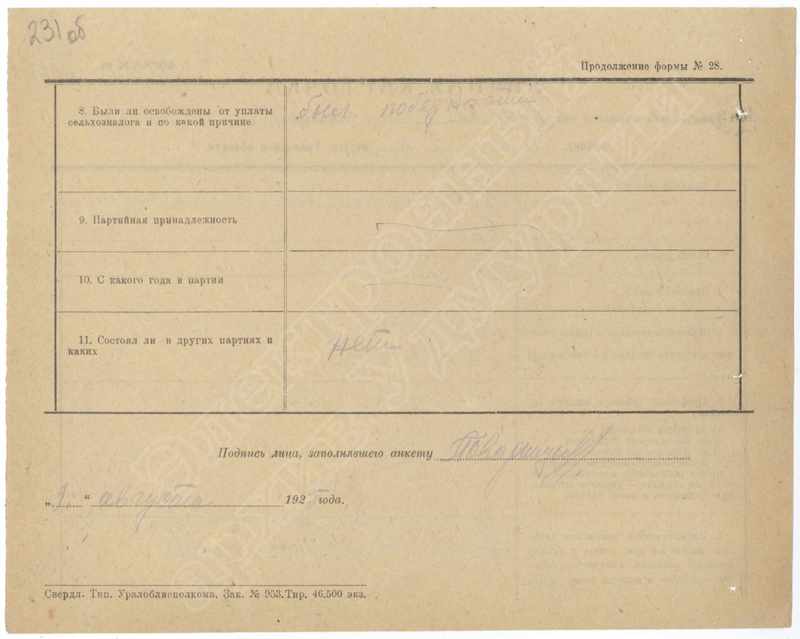 231 об
Продолжение формы № 28.
8. Были ли освобождены от уплаты
сельхозналога и по какой причине
был по
9. Партийная принадлежность
10. С какого года в партии
11. Состоял ли в других партиях и
каких
нет
Подпись лица, заполнявшего анкету
„1“ августа 192 года.
Свердл. Тип. Уралоблисполкома, Зак. № 953. Тир. 46,500 экз.